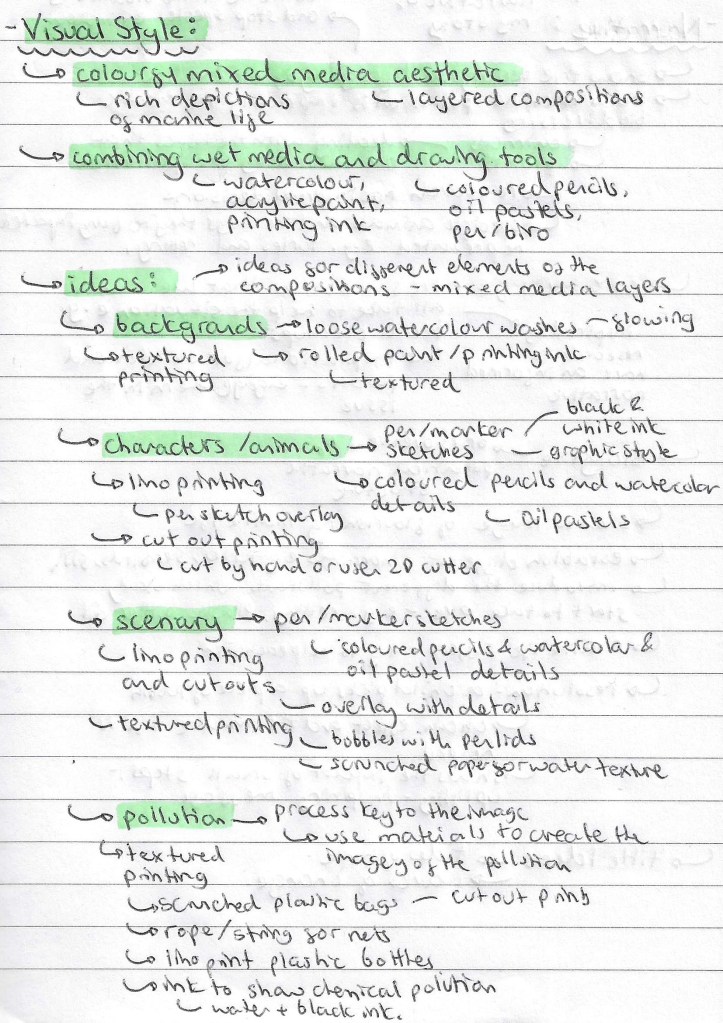 - Visual Style:
↳ colourful mixed media aesthetic
↳ rich depictions ↳ layered compositions
of marine life
↳ combining wet media and drawing tools
↳ watercolour, ↳ coloured pencils,
acrylic paint, oil pastels,
printing ink pen/biro
↳ ideas: → ideas for different elements of the
compositions - mixed media layers
↳ backgrounds → loose watercolour washes - flowing
↳ textured ↳ rolled paint/printing ink
printing ↳ textured
↳ characters/animals → pen/marker - black &
sketches white ink
- graphic style
↳ lino printing ↳ coloured pencils and watercolor
↳ pen sketch overlay details ↳ oil pastels
↳ cut out printing
↳ cut by hand or user 2D cutter
↳ scenary → pen/marker sketches
↳ lino printing ↳ coloured pencils & watercolar &
and cutouts oil pastel details
↳ overlay with details
↳ textured printing ↳ bubbles with pen lids
↳ scrunched paper for water texture
↳ pollution → process key to the image
↳ use materials to create the
imagery of the pollution
↳ textured
printing
↳ scrunched plastic bags - cut out print
↳ rope/string for nets
↳ lino print plastic bottles
↳ ink to show chemical polution
↳ water + black ink.